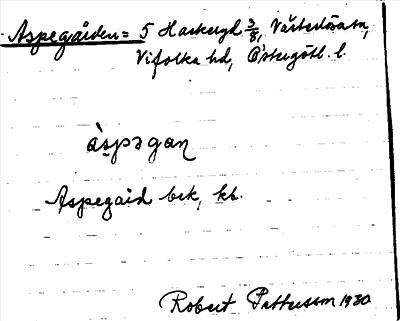 Aspegården = 5 Harkeryd 3/8, Västerlösa sn,
Vifolka hd, Östergötl. l.
àspəgan
Aspegård bek, kb.
Robert Pettersson 1930